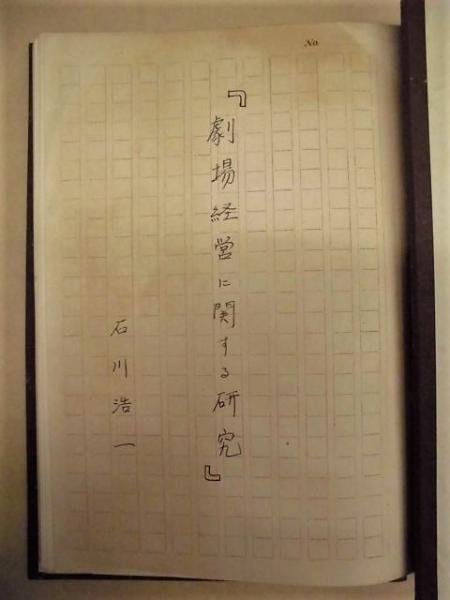 No.
『劇場経営に関する研究』
石川浩一